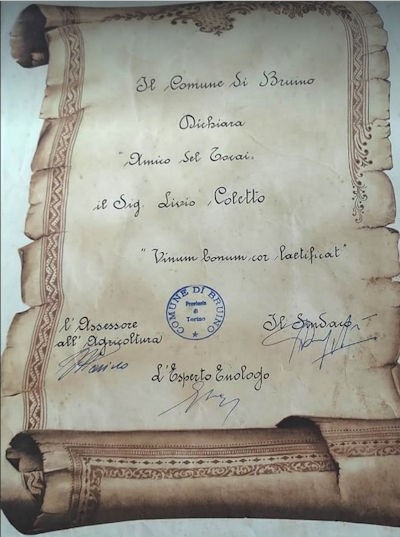 Il Comune di Bruino
Dichiara
"Amico del Tocai"
il Sig. Livio Coletto
"Vinum bonum cor laetificat"
COMUNE DI BRUINO
Provincia
di
Torino
l'Assessore
all'Agricoltura
Il Sindaco
d'Esperto Enologo